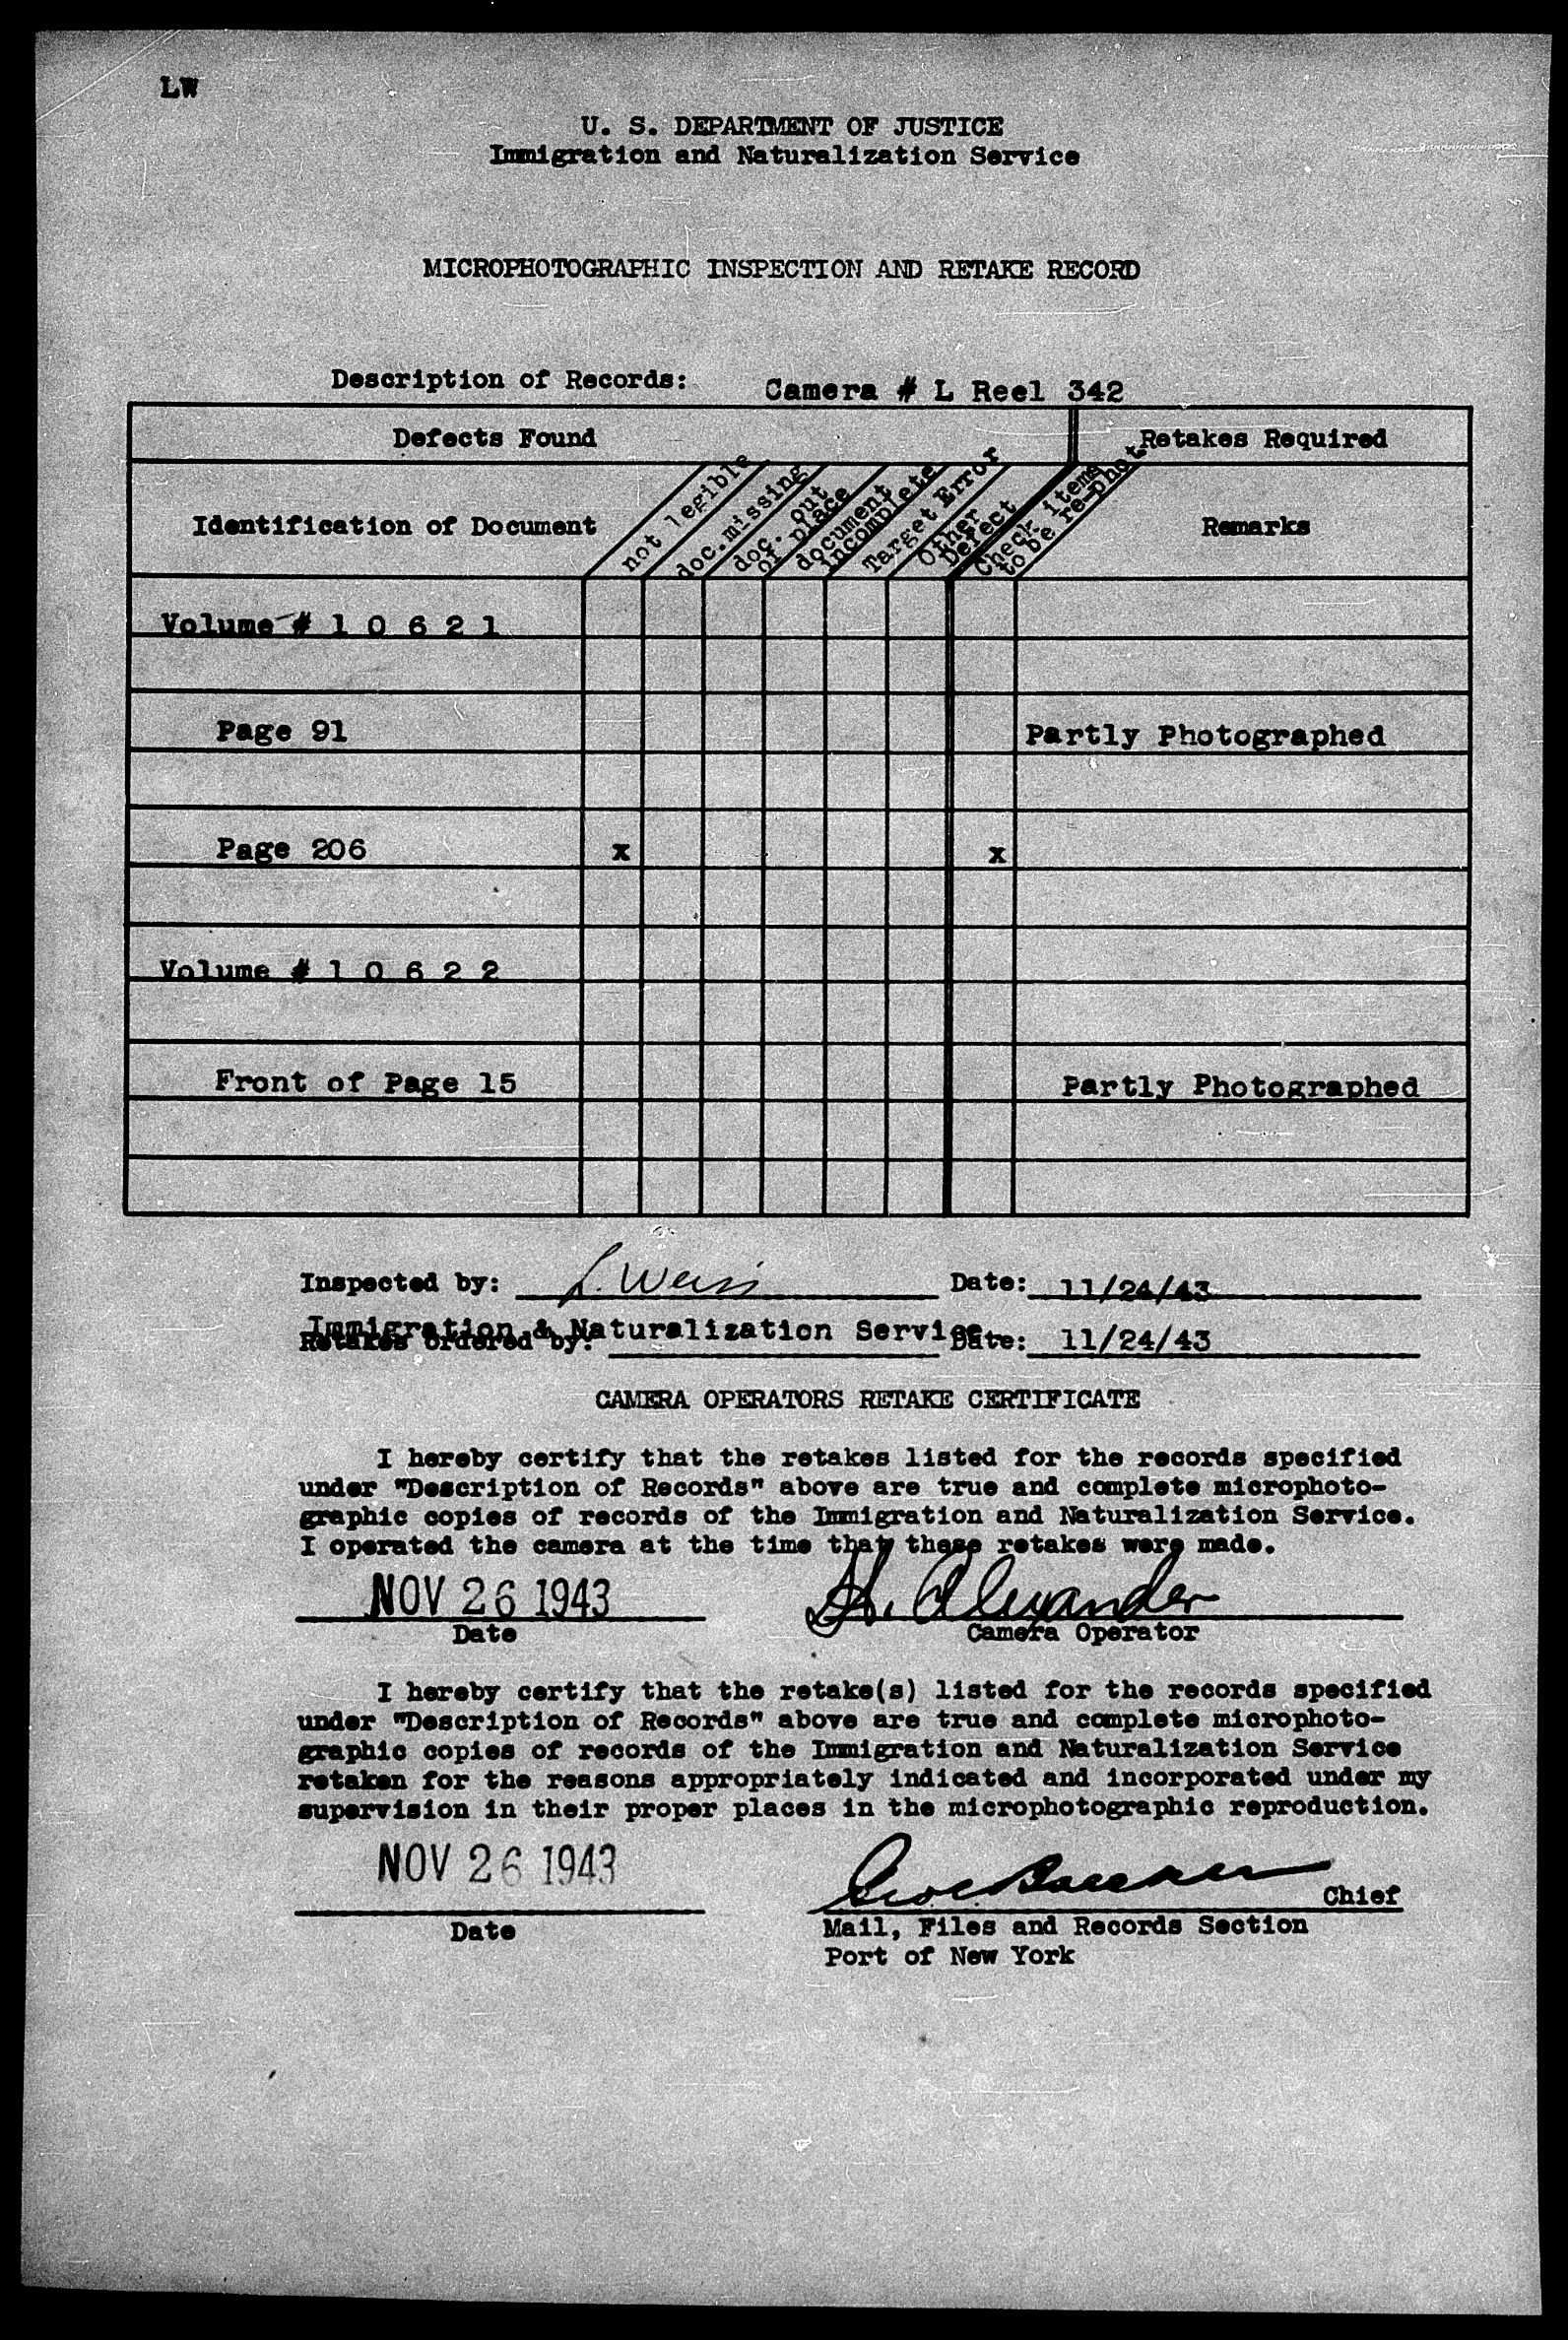 LW
U. S. DEPARTMENT OF JUSTICE
Immigration and Naturalization Service
MICROPHOTOGRAPHIC INSPECTION AND RETAKE RECORD
Description of Records: Camera # L Reel 342
Defects Found
Retakes Required
Identification of Document
not legible
doc.missing
doc. out
of place
document
incomplete
Target Error
Other
Defect
Check items
to be re-phot
Remarks
Volume # 1 0 6 2 1
Page 91 Partly Photographed
Page 206 x x
Volume # 1 0 6 2 2
Front of Page 15 Partly Photographed
Inspected by: L. Weiss Date: 11/24/43
Immigration & Naturalization Service
Retakes ordered by: Date: 11/24/43
CAMERA OPERATORS RETAKE CERTIFICATE
I hereby certify that the retakes listed for the records specified
under "Description of Records" above are true and complete microphoto-
graphic copies of records of the Immigration and Naturalization Service.
I operated the camera at the time that these retakes were made.
NOV 26 1943 H. Alexander
Date Camera Operator
I hereby certify that the retake(s) listed for the records specified
under "Description of Records" above are true and complete microphoto-
graphic copies of records of the Immigration and Naturalization Service
retaken for the reasons appropriately indicated and incorporated under my
supervision in their proper places in the microphotographic reproduction.
NOV 26 1943
Chief
Date Mail, Files and Records Section
Port of New York